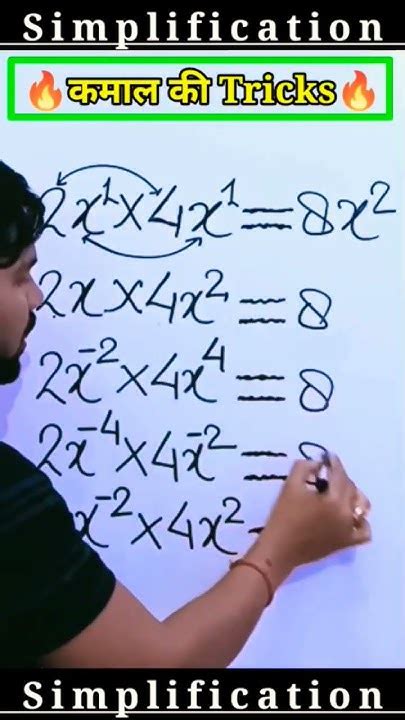 Simplification
🔥कमाल की Tricks🔥
2x¹×4x¹=8x²
2x×4x²=8
2x⁻²×4x⁴=8
2x⁻⁴×4x⁻²=8
x⁻²×4x²
Simplification